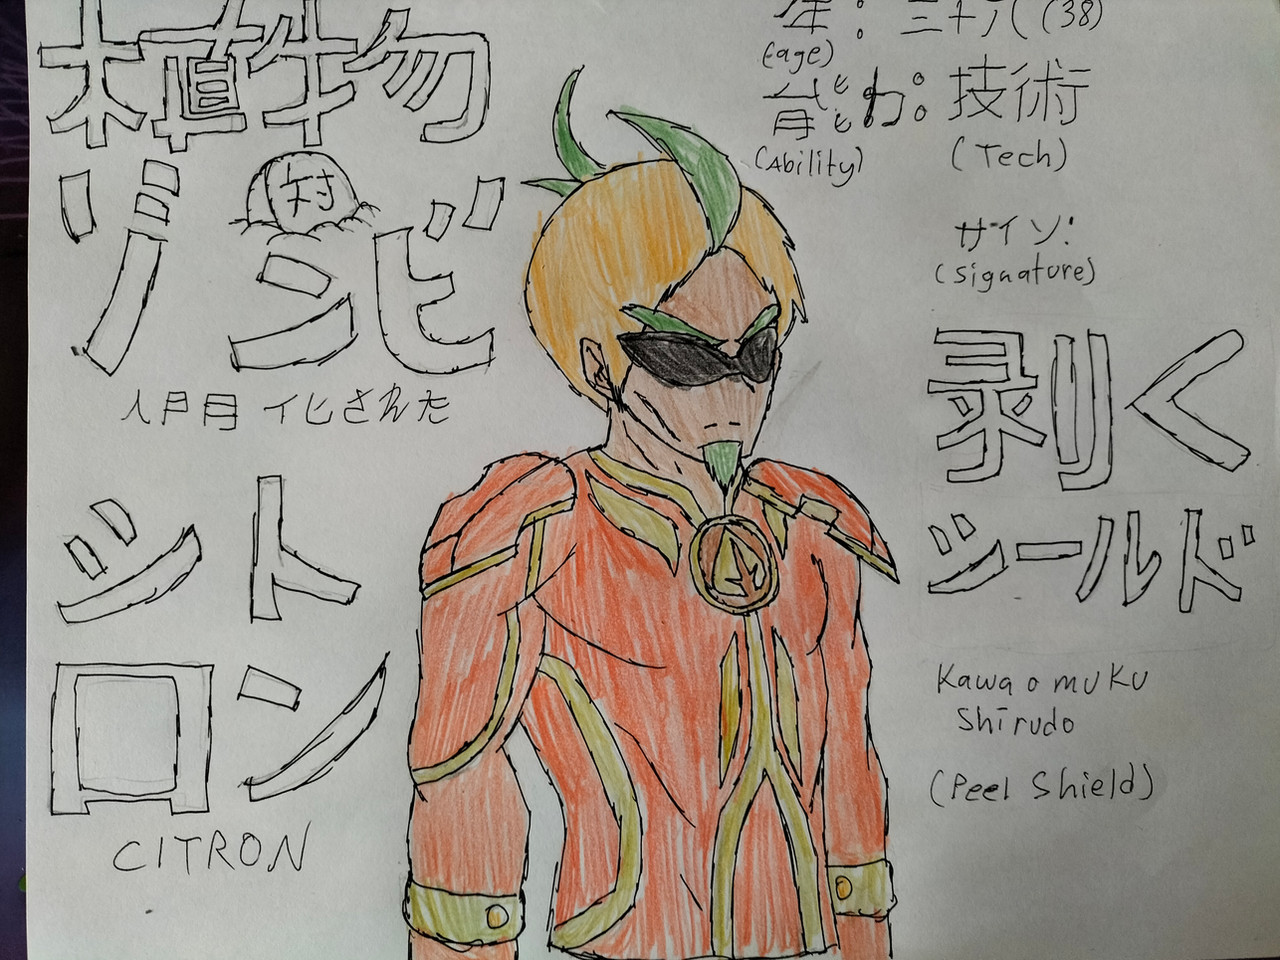 植物
対
ゾンビ
人間化された
シトロン
CITRON
年：三十八 (38)
(age)
能力：技術
(Ability) (Tech)
サイン：
(signature)
剥く
シールド
Kawa o muku
Shīrudo
(Peel Shield)